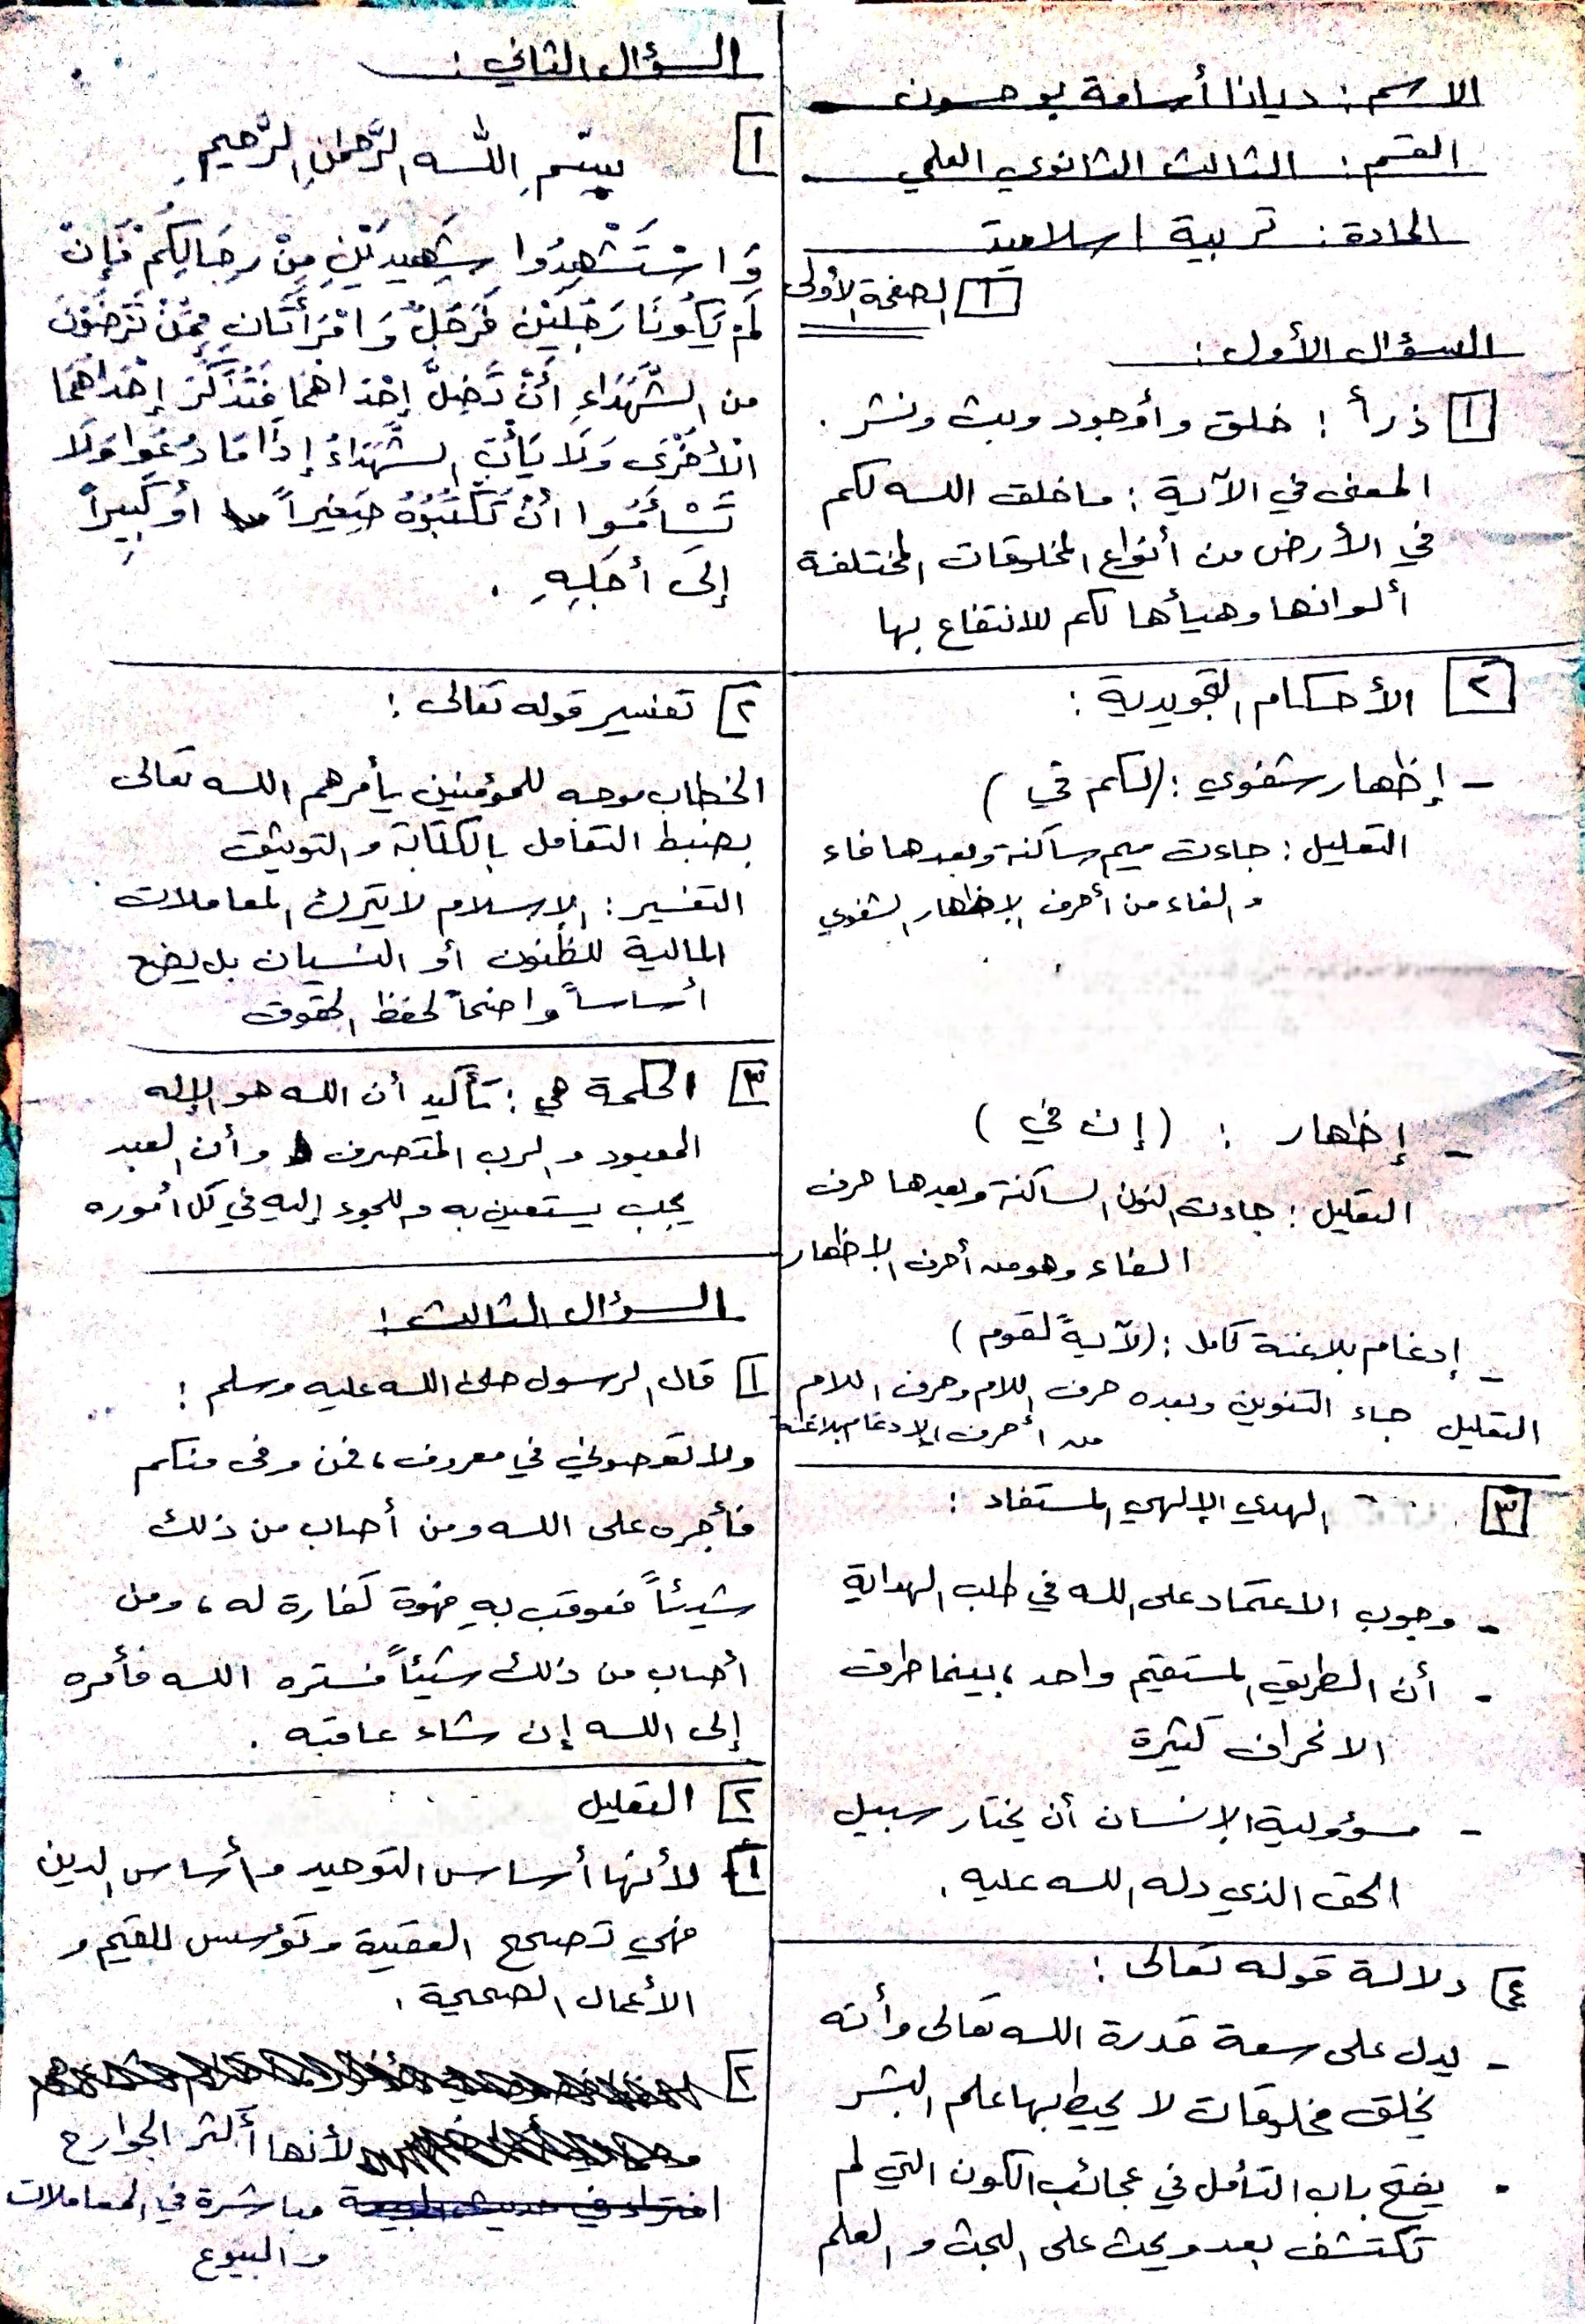 الاسم: ديانا أسامة بو حسون
القسم: الثالث الثانوي العلمي
المادة: تربية إسلامية
١ الصفحة الأولى
السؤال الأول:
١ ذرأ: خلق وأوجد وبث ونشر.
المعنى في الآية: ما خلق الله لكم
في الأرض من أنواع المخلوقات المختلفة
ألوانها وهيأها لكم للانتفاع بها
٢ الأحكام التجويدية:
- إظهار شفوي: (لكم في)
التعليل: جاءت ميم ساكنة وبعدها فاء
والفاء من أحرف الإظهار الشفوي
- إظهار: (إن في)
التعليل: جاءت النون الساكنة وبعدها حرف
الفاء وهو من أحرف الإظهار
- إدغام بلاغنة كامل: (لآيةً لقوم)
التعليل جاء التنوين وبعده حرف اللام وحرف اللام
من أحرف الإدغام بلاغنة
٣ الهدي الإلهي المستفاد:
- وجوب الاعتماد على الله في طلب الهداية
- أن الطريق المستقيم واحد، بينما طرق
الانحراف كثيرة
- مسؤولية الإنسان أن يختار سبيل
الحق الذي دله الله عليه.
٤ دلالة قوله تعالى:
- يدل على سعة قدرة الله تعالى وأنه
يخلق مخلوقات لا يحيط بها علم البشر
• يفتح باب التأمل في عجائب الكون التي لم
تكتشف بعد ويحث على البحث والعلم
السؤال الثاني:
١ بِسْمِ اللَّهِ الرَّحْمٰنِ الرَّحِيمِ
وَاسْتَشْهِدُوا شَهِيدَيْنِ مِنْ رِجَالِكُمْ فَإِنْ
لَمْ يَكُونَا رَجُلَيْنِ فَرَجُلٌ وَامْرَأَتَانِ مِمَّنْ تَرْضَوْنَ
من الشُّهَدَاءِ أَنْ تَضِلَّ إِحْدَاهُمَا فَتُذَكِّرَ إِحْدَاهُمَا
الْأُخْرَى وَلَا يَأْبَ الشُّهَدَاءُ إِذَا مَا دُعُوا وَلَا
تَسْأَمُوا أَنْ تَكْتُبُوهُ صَغِيراً أَو كَبِيراً
إِلَى أَجَلِهِ.
٢ تفسير قوله تعالى:
الخطاب موجه للمؤمنين يأمرهم الله تعالى
بضبط التعامل بالكتابة والتوثيق
التفسير: الإسلام لا يترك المعاملات
المالية للظنون أو النسيان بل يضع
أساساً واضحاً لحفظ الحقوق
٣ الحكمة هي: تأكيد أن الله هو الإله
المعبود والرب المتصرف وأن العبد
يجب يستعين به واللجوء إليه في كل أموره
السؤال الثالث:
١ قال الرسول صلى الله عليه وسلم:
ولا تعصوني في معروف، فمن وفى منكم
فأجره على الله ومن أصاب من ذلك
شيئاً فعوقب بهِ فهوة كفارة له، ومن
أصاب من ذلك شيئاً فستره الله فأمره
إلى الله إن شاء عاقبه.
٢ التعليل
١ لأنها أساس التوحيد وأساس الدين
فهي تصحح العقيدة وتؤسس للقيم و
الأعمال الصحيحة.
٢ لأنها أكثر الجوارح
مباشرة في المعاملات
والبيوع